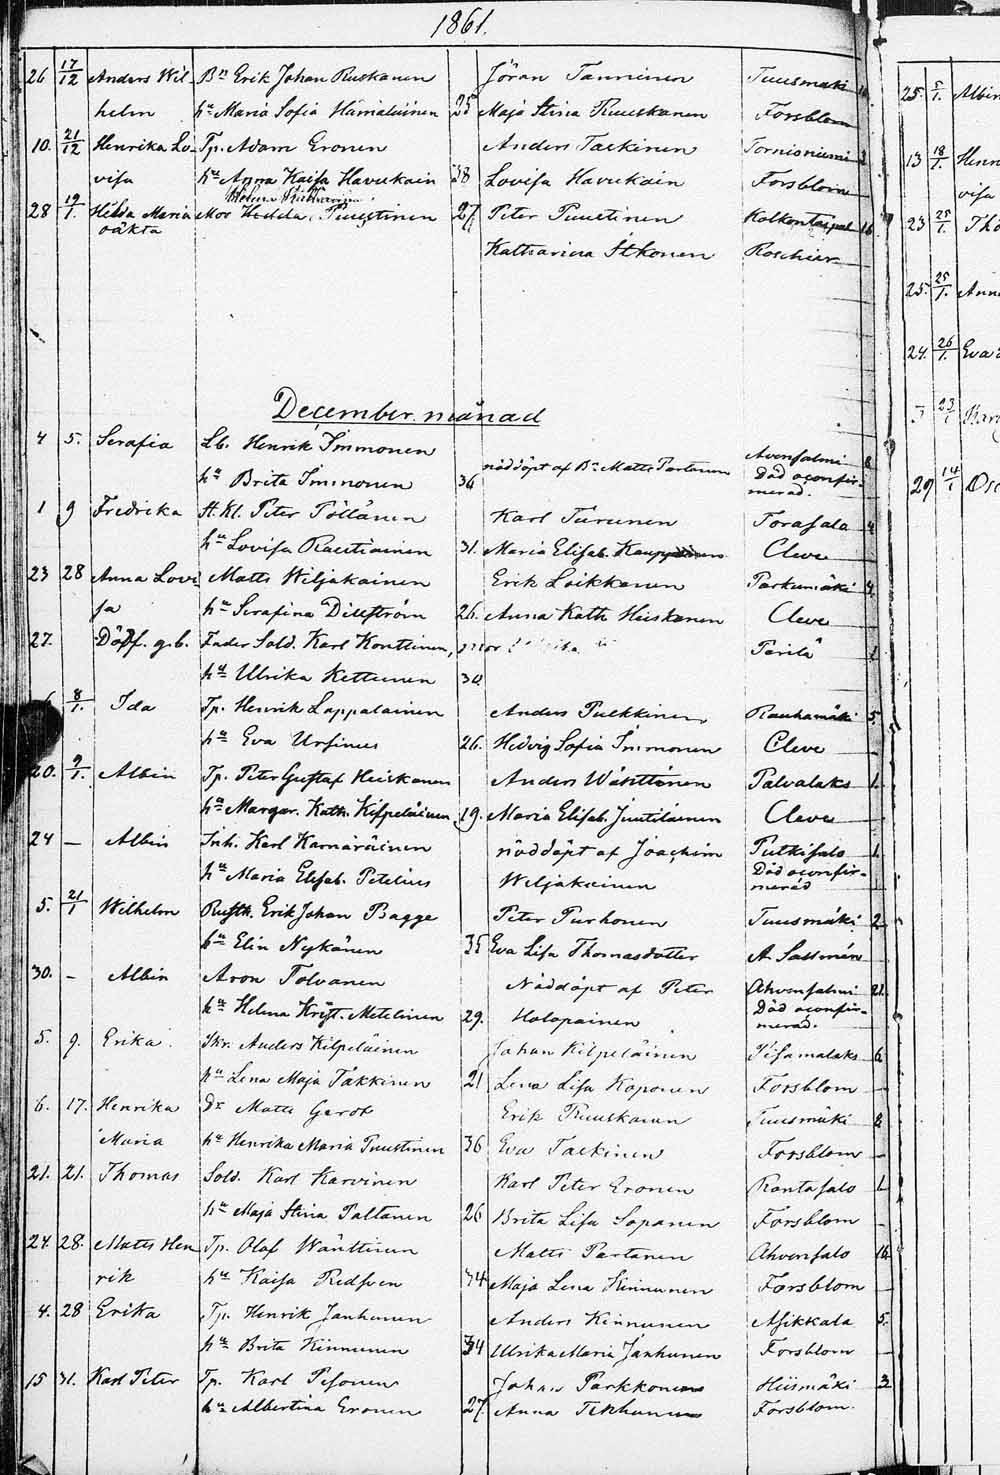 1861.
26 17/12 Anders Wil- Bn Erik Johan Ruskanen Jöran Tanninen Tuusmäki
helm hu Maria Sofia Hämäläinen 25 Maja Stina Ruuskanen Forsblom
10. 21/12 Henrika Lo- Tp. Adam Eronen Anders Taskinen Tornioniemi 2
visa hu Anna Kaisa Havukain 38 Lovisa Havukain Forsblom
28 19/1. Hilda Maria Mor Hedda Puustinen 27 Peter Puustinen Kolkontaipal 16
oäkta Katharina Itkonen Roschier
December månad
4 5. Serafia Lb. Henrik Immonen
hu Brita Immonen 36 nöddöpt af Bn Matts Partanen Död oconfir-
merad.
1 9 Fredrika St. Kl. Peter Pöllänen Karl Turunen Torasalo 4
hu Lovisa Rautiainen 31. Maria Elisab. Kauppinen Cleve
23 28 Anna Lovi Matts Wiljakainen Erik Loikkanen Parkumäki 4
sa hu Serafina Dillström 26. Anna Kath Hiiskanen Cleve
27. Dödf. g.b. Fader Sold. Karl Konttinen, mor Parila 1
hu Ulrika Kettunen 30.
8/1. Ida Tp. Henrik Lappalainen Anders Pulkkinen Rauhamäki 5.
hu Eva Ursinus 26. Hedvig Sofia Immonen Cleve
20. 9/1. Albin Tp. Peter Gustaf Heiskanen Anders Wänttönen Palvalaks 1.
hu Margar. Kath. Kilpeläinen 19. Maria Elisab. Juutilainen Cleve
24 — Albin Inh. Karl Karnäräinen nöddöpt af Joachim Putkisalo 1.
hu Maria Elisab. Petelius Weljakainen Död oconfir-
merad
5. 21/1 Wilhelm Rusth. Erik Johan Bagge Peter Purhonen Tuusmäki 2
hu Elin Nykänen 35 Eva Lisa Thomasdotter A. Sallmén
30. - Albin Aron Tolvanen Nöddöpt af Peter Ahvensalmi 21.
hu Helena Krist. Metelinen 29. Holopainen Död oconfir-
merad.
5. 9. Erika Skr. Anders Kilpeläinen Johan Kilpeläinen 6
hu Lena Maja Takkinen 21 Lena Lisa Koponen Forsblom —
6. 17. Henrika Dr Matts Gerot Erik Ruuskanen Tuusmäki 8
Maria hu Henrika Maria Puustinen 36 Eva Taskinen Forsblom —
21. 21. Thomas Sold. Karl Karvinen Karl Peter Eronen Rantasalo 1
hu Maja Stina Paltanen 26 Brita Lisa Sopanen Forsblom —
24 28. Matts Hen Tp. Olof Wänttinen Matts Partanen Ahvensalo 16
rik hu Kaisa Redsven 34 Maja Lena Kinnunen Forsblom —
4. 28 Erika Tp. Henrik Janhunen Anders Kinnunen Asikkala 5.
hu Brita Kinnunen 34 Ulrika Maria Janhunen Forsblom —
15 31. Karl Peter Tp. Karl Pesonen Johan Parkkonen Hiismäki 3
hu Albertina Eronen 27. Anna Forsblom.